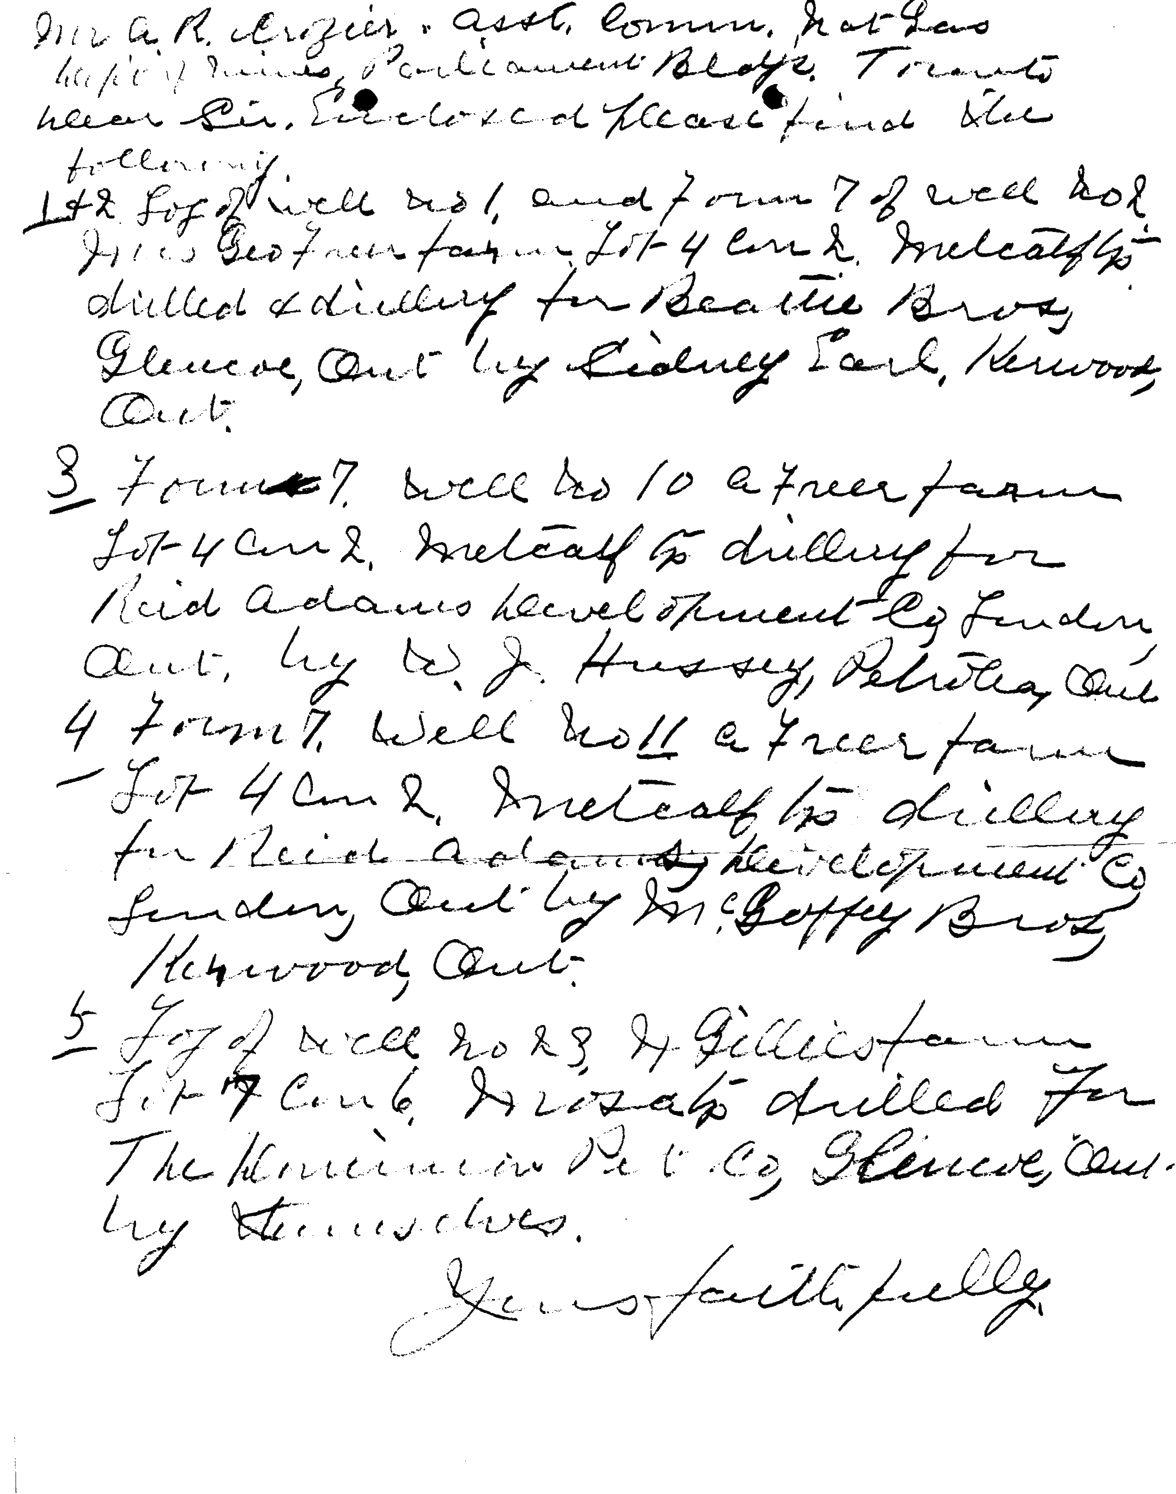 Mr A. R. Crozier. Asst. Comm. Nat Gas
Dept of Mines, Parliament Bldgs. Toronto
Dear Sir. Enclosed please find the
following.
1+2 Log of well No 1, and Form 7 of well No 2
Mrs Geo Freer farm Lot 4 Con 2. Metcalf Tp
drilled & drilling for Beattie Bros,
Glencoe, Ont by Sidney Earl, Kerwood,
Ont.
3 Form 7. Well No 10 A Freer farm
Lot 4 Con 2. Metcalf Tp drilling for
Reid Adams Development Co, London,
Ont. by W. J. Hussey, Petrolea, Ont
4 Form 7. Well No 11 A Freer farm
Lot 4 Con 2. Metcalf Tp drilling
for Reid Adams, Development Co,
London, Ont by Mc.Goffey Bros,
Kerwood, Ont.
5 Log of well No 23, Gillies farm
Lot 7 Con 6. Mosa Tp drilled For
The Dominion Pet Co, Glencoe, Ont.
by themselves.
Yours faithfully.